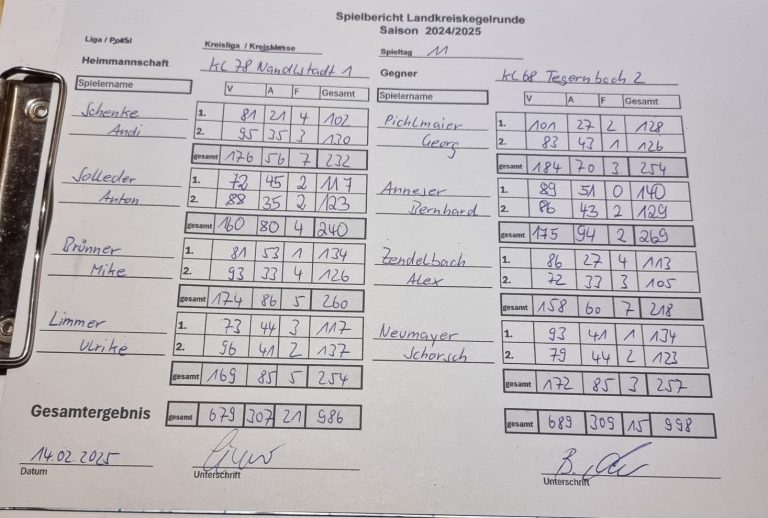 Spielbericht Landkreiskegelrunde
Saison 2024/2025
Liga / Pokal Kreisliga / Kreisklasse Spieltag 11
Heimmannschaft KC 78 Nandlstadt 1 Gegner KC 68 Tegernbach 2
Spielername V A F Gesamt Spielername V A F Gesamt
Schenke 1. 81 21 4 102 Pichlmaier 1. 101 27 2 128
Andi 2. 95 35 3 130 Georg 2. 83 43 1 126
gesamt 176 56 7 232 gesamt 184 70 3 254
Solleder 1. 72 45 2 117 Anneser 1. 89 51 0 140
Anton 2. 88 35 2 123 Bernhard 2. 86 43 2 129
gesamt 160 80 4 240 gesamt 175 94 2 269
Brünner 1. 81 53 1 134 Zendelbach 1. 86 27 4 113
Mike 2. 93 33 4 126 Alex 2. 72 33 3 105
gesamt 174 86 5 260 gesamt 158 60 7 218
Limmer 1. 73 44 3 117 Neumayer 1. 93 41 1 134
Ulrike 2. 96 41 2 137 Schorsch 2. 79 44 2 123
gesamt 169 85 5 254 gesamt 172 85 3 257
Gesamtergebnis gesamt 679 307 21 986 gesamt 689 309 15 998
14.02.2025
Datum Unterschrift Unterschrift